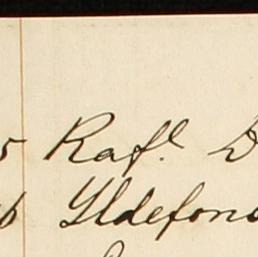 5 Rafl. D
Yldefons